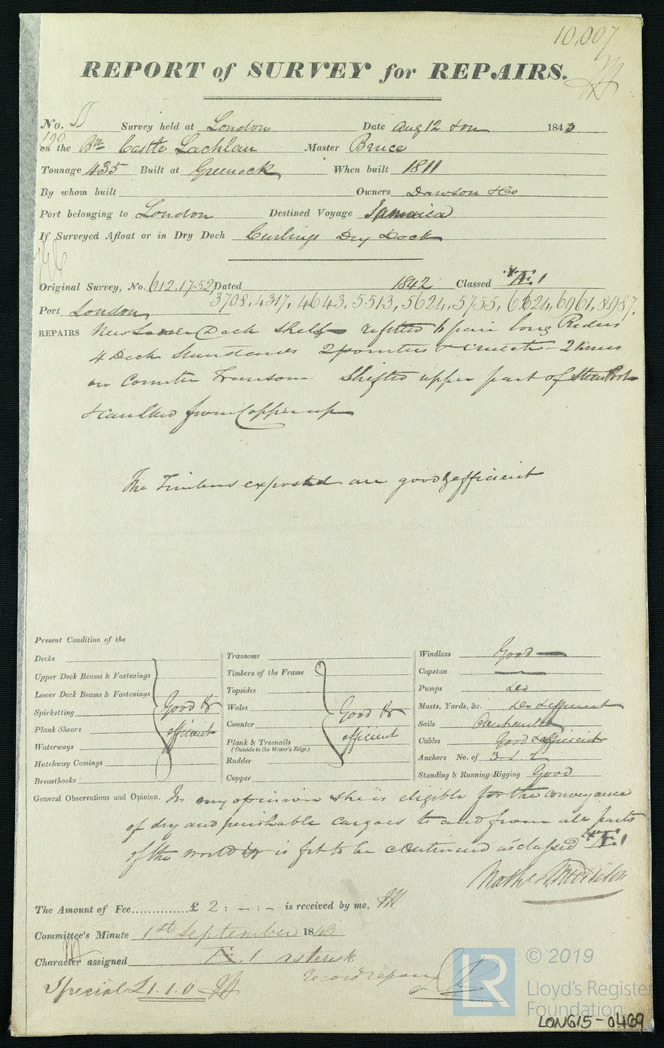 10,007
REPORT of SURVEY for REPAIRS.
No. Survey held at London Date Aug 12 1843
on the Castle Lachlan Master Bruce
Tonnage 435 Built at Greenock When built 1811
By whom built Owners Dawson & Co
Port belonging to London Destined Voyage Jamaica
If Surveyed Afloat or in Dry Dock Curlings Dry Dock
Original Survey, No. 612.1752 Dated 1842 Classed *Æ.1
Port London 3708, 4317, 4643, 5513, 5624, 5755, 6624, 6961, 8987.
REPAIRS New Lower Deck Shelf refitted 4 pair long Riders
4 Deck Standards 2 pointers 2 knees
on Counter Transom Shifted upper part of Stern Post
& caulked from Copper up
The Timbers exposed are good & efficient
Present Condition of the
Decks
Upper Deck Beams & Fastenings
Lower Deck Beams & Fastenings
Spirketting
Plank Shears
Waterways
Hatchway Comings
Breasthooks
Good & efficient
Transoms
Timbers of the Frame
Topsides
Wales
Counter
Plank & Treenails
(Outside to the Water's Edge)
Rudder
Copper
Good & efficient
Windlass Good
Capstan
Pumps Do
Masts, Yards, &c. Do & efficient
Sails
Cables Good & efficient
Anchors No. of 3. 1. 2
Standing & Running Rigging Good
General Observations and Opinion. In my opinion she is eligible for the conveyance
of dry and perishable cargoes to and from all parts
of the world & is fit to be continued as classed *Æ.1
The Amount of Fee £ 2 : - : - is received by me,
Committee's Minute 1st September 1843
Character assigned Æ.1 asterisk
Special £1.1.0 record repairs
LR © 2019
Lloyd's Register
Foundation
LON615-0469